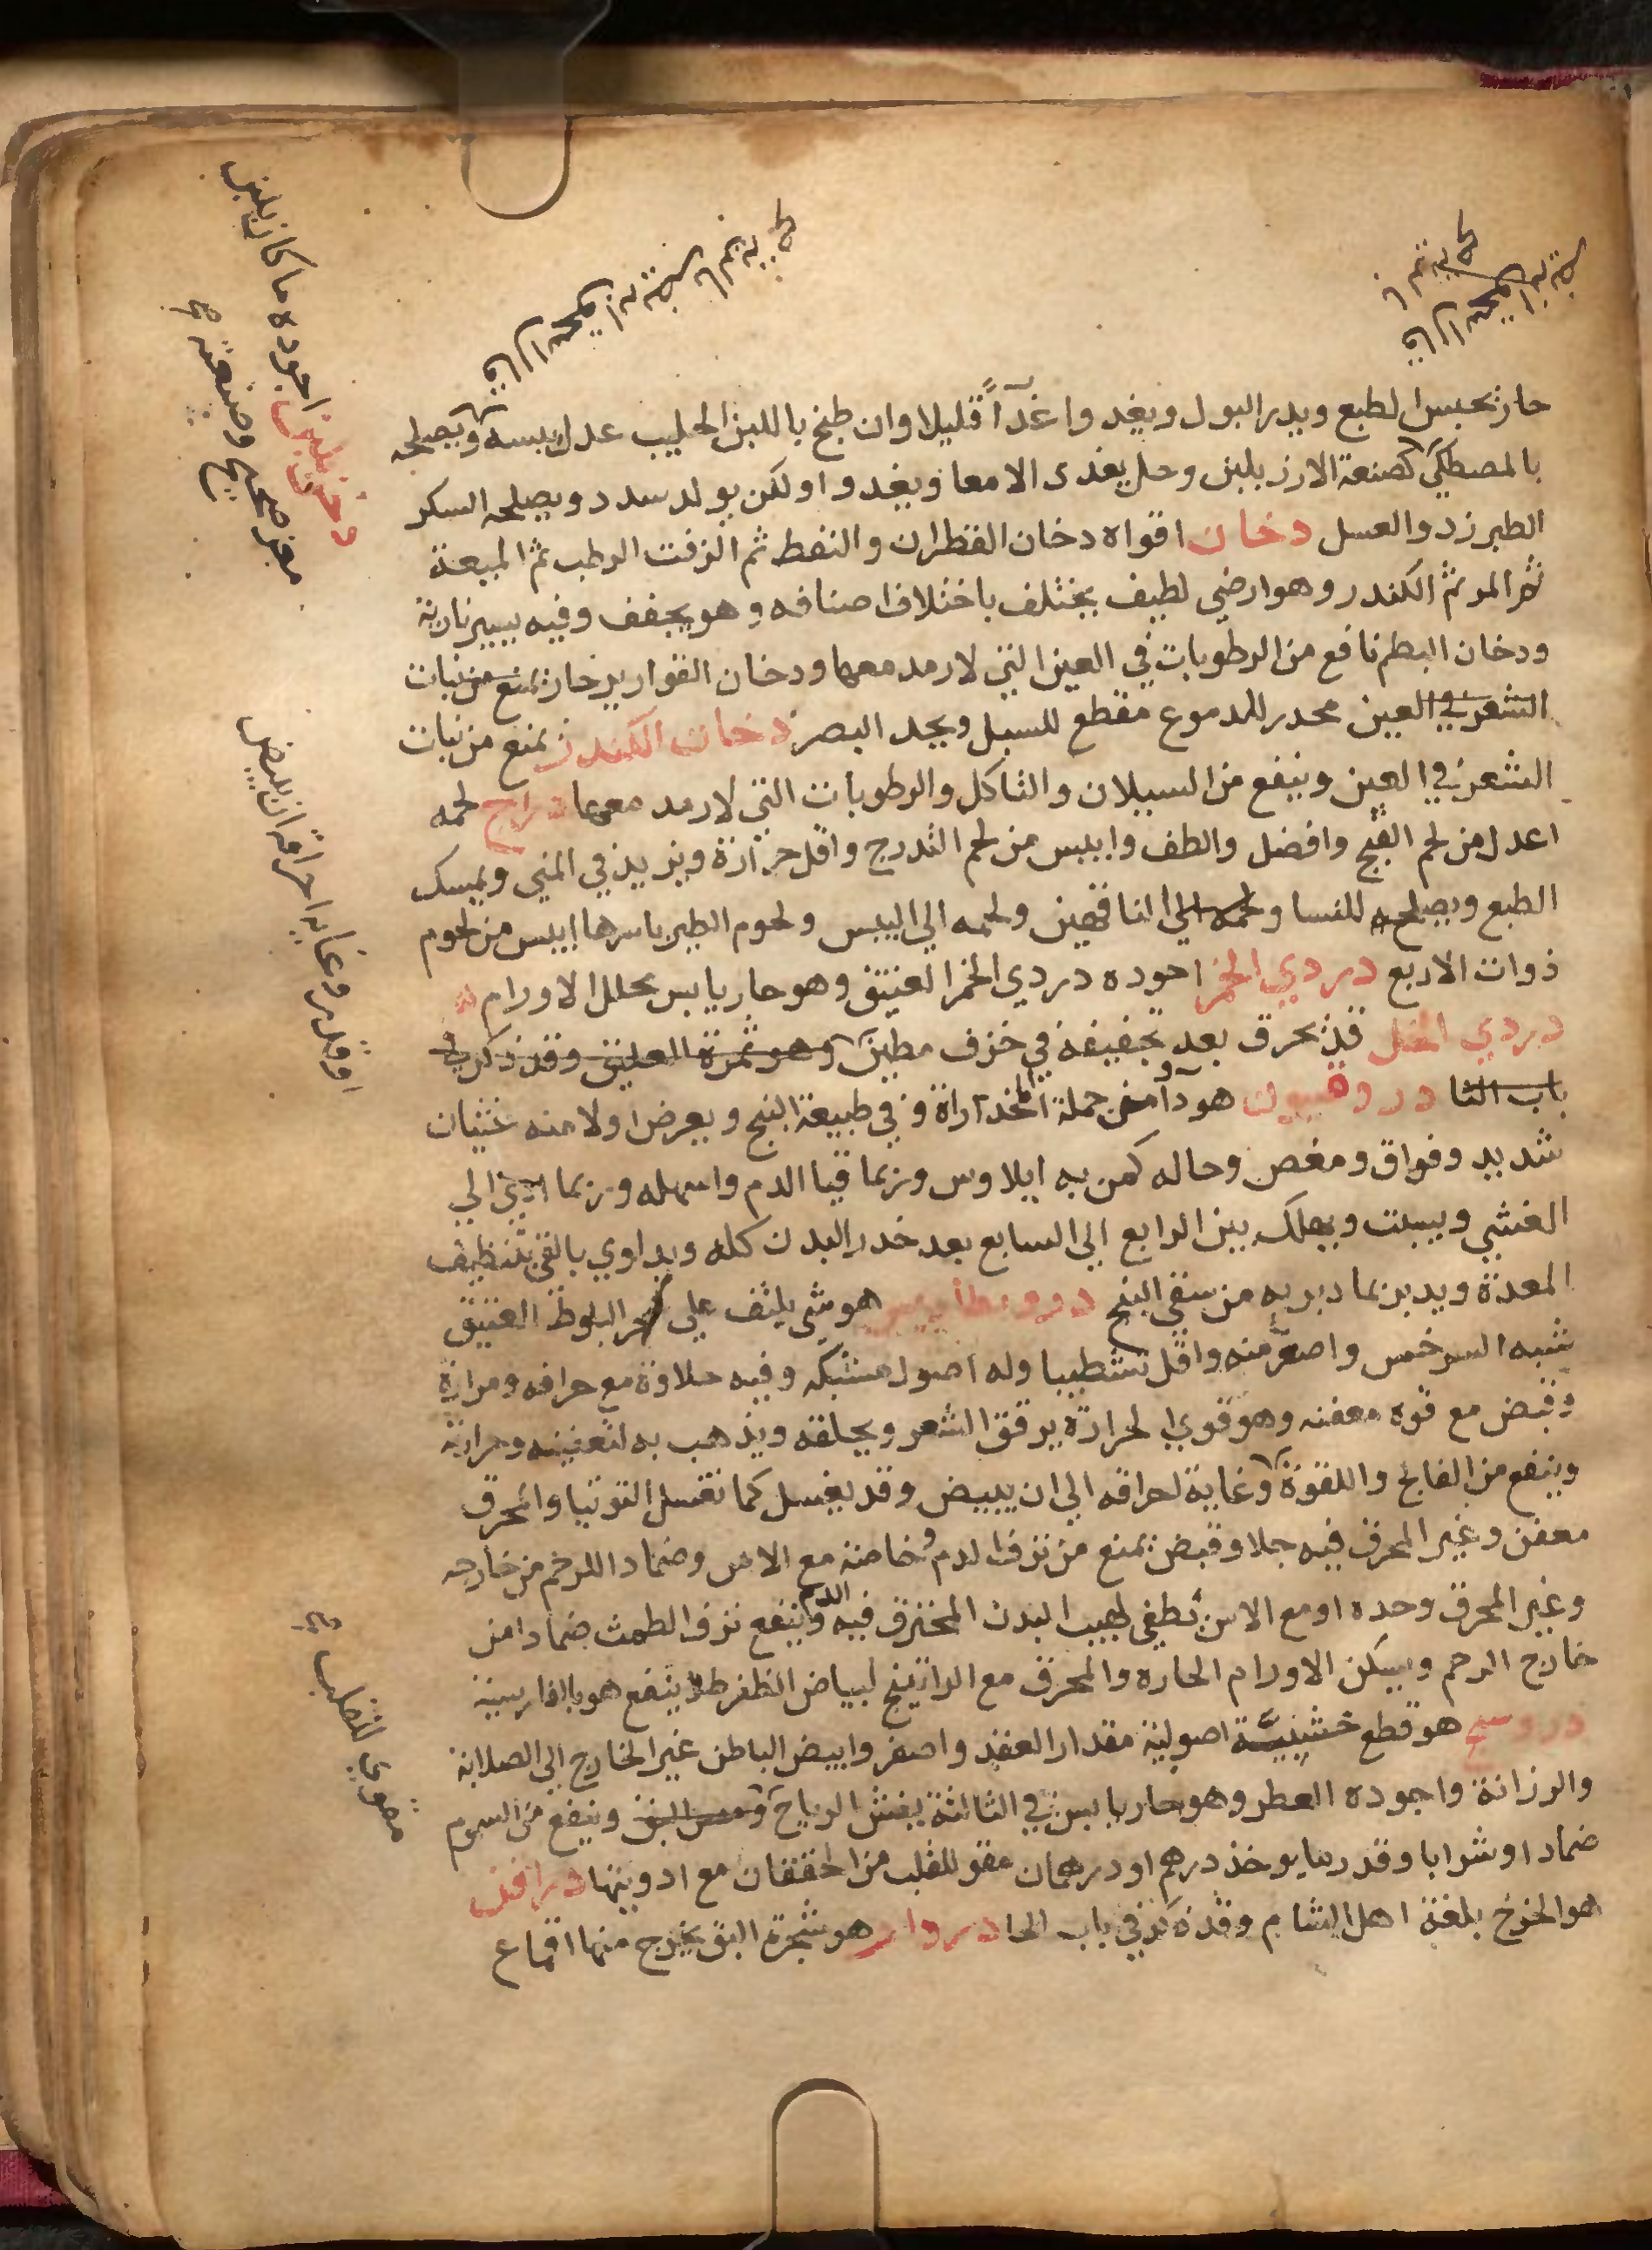 حار يحبس الطبع ويدر البول ويغدوا غدآءً قليلا وان طبخ باللبن الحليب عدل يبسه ويصلحه
بالمصطكي كصنعة الارز بلبن وحل يغدى الامعا ويغدوا ولكن يولد سدد ويصلحه السكر
الطبرزد والعسل دخان اقواه دخان القطران والنفط ثم الزفت الرطب ثم الميعة
ثم المر ثم الكندر وهو ارضي لطيف يختلف باختلاف اصنافه وهو يجفف وفيه يسير نارية
ودخان البطم نافع من الرطوبات في العين التي لا رمد معها ودخان القوارير حار يمنع من نبات
الشعر في العين محدر للدموع مقطع للسبل ويحد البصر دخان الكندر يمنع من نبات
الشعر في العين وينفع من السيلان والتاكل والرطوبات التي لا رمد معها دراج لحمه
اعدل من لحم القبج وافضل والطف وايبس من لحم التدرج واقل حرارة ويزيد في المني ويمسك
الطبع ويصلح للنسا ولحمه الي الناقهين ولحمه الي اليبس ولحوم الطير باسرها ايبس من لحوم
ذوات الاربع دردي الخمر اجوده دردي الخمر العتيق وهو حار يابس يحلل الاورام
دردي الخل قد يحرق بعد تجفيفه في خزف مطين وهو ثمرة العليق وقد ذكر في
باب الثا دروقنيون هو دآء من جملة المخدراة وفي طبيعة البنج ويعرض اولا منه غثيان
شديد وفواق ومغص وحاله كمن به ايلاوس وربما قيا الدم واسهله وربما ادي الي
الغشي ويسبت ويهلك بين الرابع الي السابع بعد خدر البدن كله ويداوي بالقي بتنظيف
المعدة ويدبر بما دبر به من سقي البنج دروبطارس هو شي يلتف علي شجر البلوط العتيق
شبه السرخس واصغر منه واقل تشطيبا وله اصول مشتبكه وفيه حلاوة مع حرافه ومرارة
وقبض مع قوة معفنه وهو قوي الحرارة يرقق الشعر ويحلقه ويذهب به لتعفينه وحرارته
وينفع من الفالج واللقوة وغاية احراقه الي ان يبيض وقد يغسل كما تغسل التوتيا والمحرق
معفن وغير المحرق فيه جلا وقبض يمنع من نزف الدم وخاصة مع الاس وضماد اللرحم من خارجه
وغير المحرق وحده او مع الاس يطفي لهيب البدن المحترق فيه الدم وينفع نزف الطمث ضمادا من
خارج الرحم ويسكن الاورام الحاره والمحرق مع الراتينج لبياض الظفر طلا ينفع هو بالفارسية
درونج هو قطع خشبيَّة اصولية مقدار العقد واصفر وابيض الباطن غير الخارج الي الصلابة
والرزانة واجوده العطر وهو حار يابس في الثالثة يفش الرياح وينفع من السموم
ضمادا وشرابا وقدر ما يوخذ درهم او درهمان مقو للقلب من الخفقان مع ادويتها دراقن
هو الخوخ بلغة اهل الشام وقد ذكر في باب الخا دردار هو شجرة البق يخرج منها اقماع
دخن بلبن اجوده ما كان بلبن
معز صحيح وصنعته
او قشر وغاية احراقه ان يبيض
مقوي للقلب